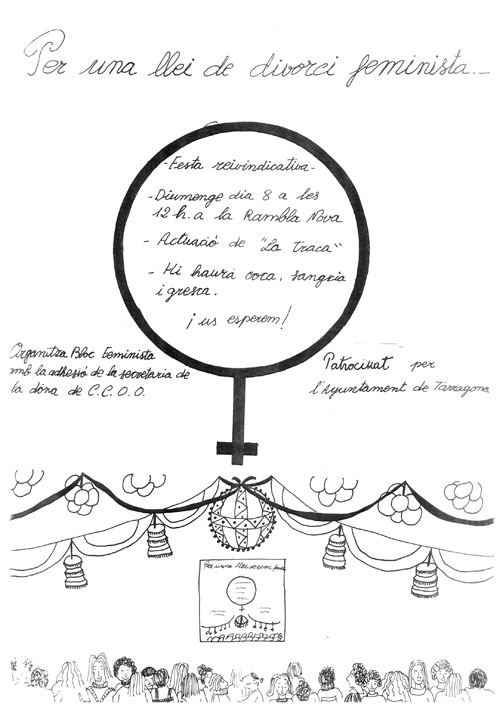 Per una llei de divorci feminista.-
-Festa reivindicativa-
-Diumenge dia 8 a les
12 h. a la Rambla Nova
- Actuació de "La Traca"
- Hi haurà coca, sangria
i gresca.
¡us esperem!
Organitza Bloc Feminista
amb la adhesió de la secretaria de
la dona de C.C.O.O.
Patrocinat per
l'Ajuntament de Tarragona
Per una llei